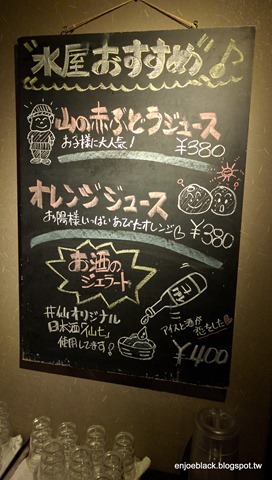 "水屋おすすめ"♪
山の赤ぶどうジュース
お子様に大人気！
¥380
オレンジジュース
お陽様いっぱいあびたオレンジ
¥380
お酒の
ジェラート
井仙オリジナル
日本酒「仙七」
使用してます！
アイスと酒が
恋をした
¥400
enjoeblack.blogspot.tw